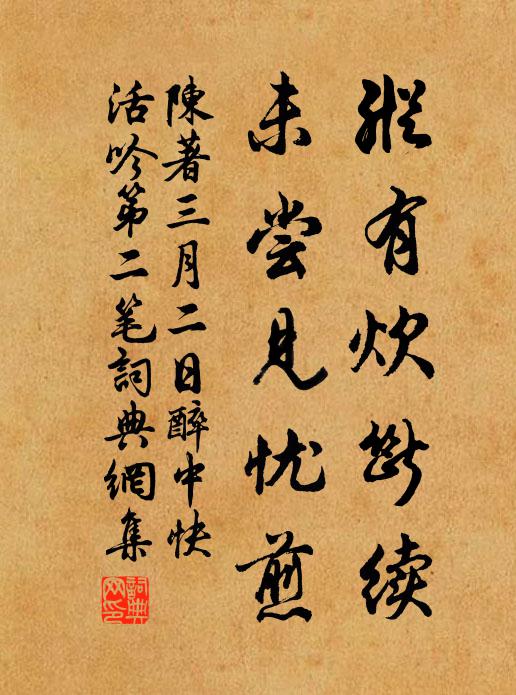 縱有炊断续
未尝見忧煎
陳著三月二日醉中快
活吟第二笔詞典網集
詞典
网印